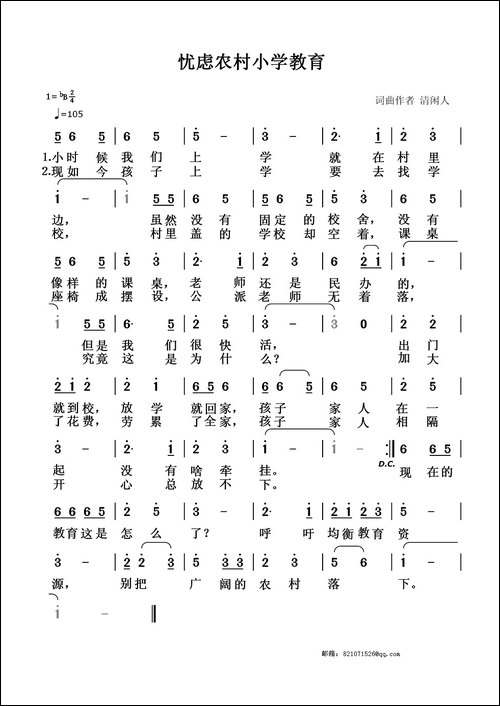 忧虑农村小学教育
1=ᵇB 2/4
♩=105
词曲作者 清闲人
5 6 5 | 6 5 | 5 - | 3 - | 2· 1 | 2 3 |
1.小时候我们上学就在村里
2.现如今孩子上学要去找学
1 - | 1 5 5 | 6 5 | 6 1 6 | 5 3 | 2 2 |
边，虽然没有固定的校舍，没有
校，村里盖的学校却空着，课桌
5 6 5 | 6 5 | 2· 1 | 2 3 | 6 2 1 | 2 - |
像样的课桌，老师还是民办的，
座椅成摆设，公派老师无着落，
1 5 5 | 6· 5 | 2 2 | 3 - | 3 0 | 2 2 |
但是我们很快活，出门
究竟这是为什么？加大
2 1 2 | 2 1 | 6 5 6 | 6 6 5 | 6 6 | 2 5 |
就到校，放学就回家，孩子家人在一
了花费，劳累了全家，孩子家人相隔
3 - | 2 2 | 2· 3 | 1 - | 1 - :| 6 6 5 |
D.C.
起没有啥牵挂。现在的
开心总放不下。
6 6 5 6 | 5 - | 2 - | 2· 1 | 2 1 2 3 | 5 5 |
教育这是怎么了？呼吁均衡教育资
3 - | 2 2 3 | 2 2 3 | 5 5 | 3 - | 2 - |
源，别把广阔的农村落下。
1 - ‖
邮箱：821071526@qq.com